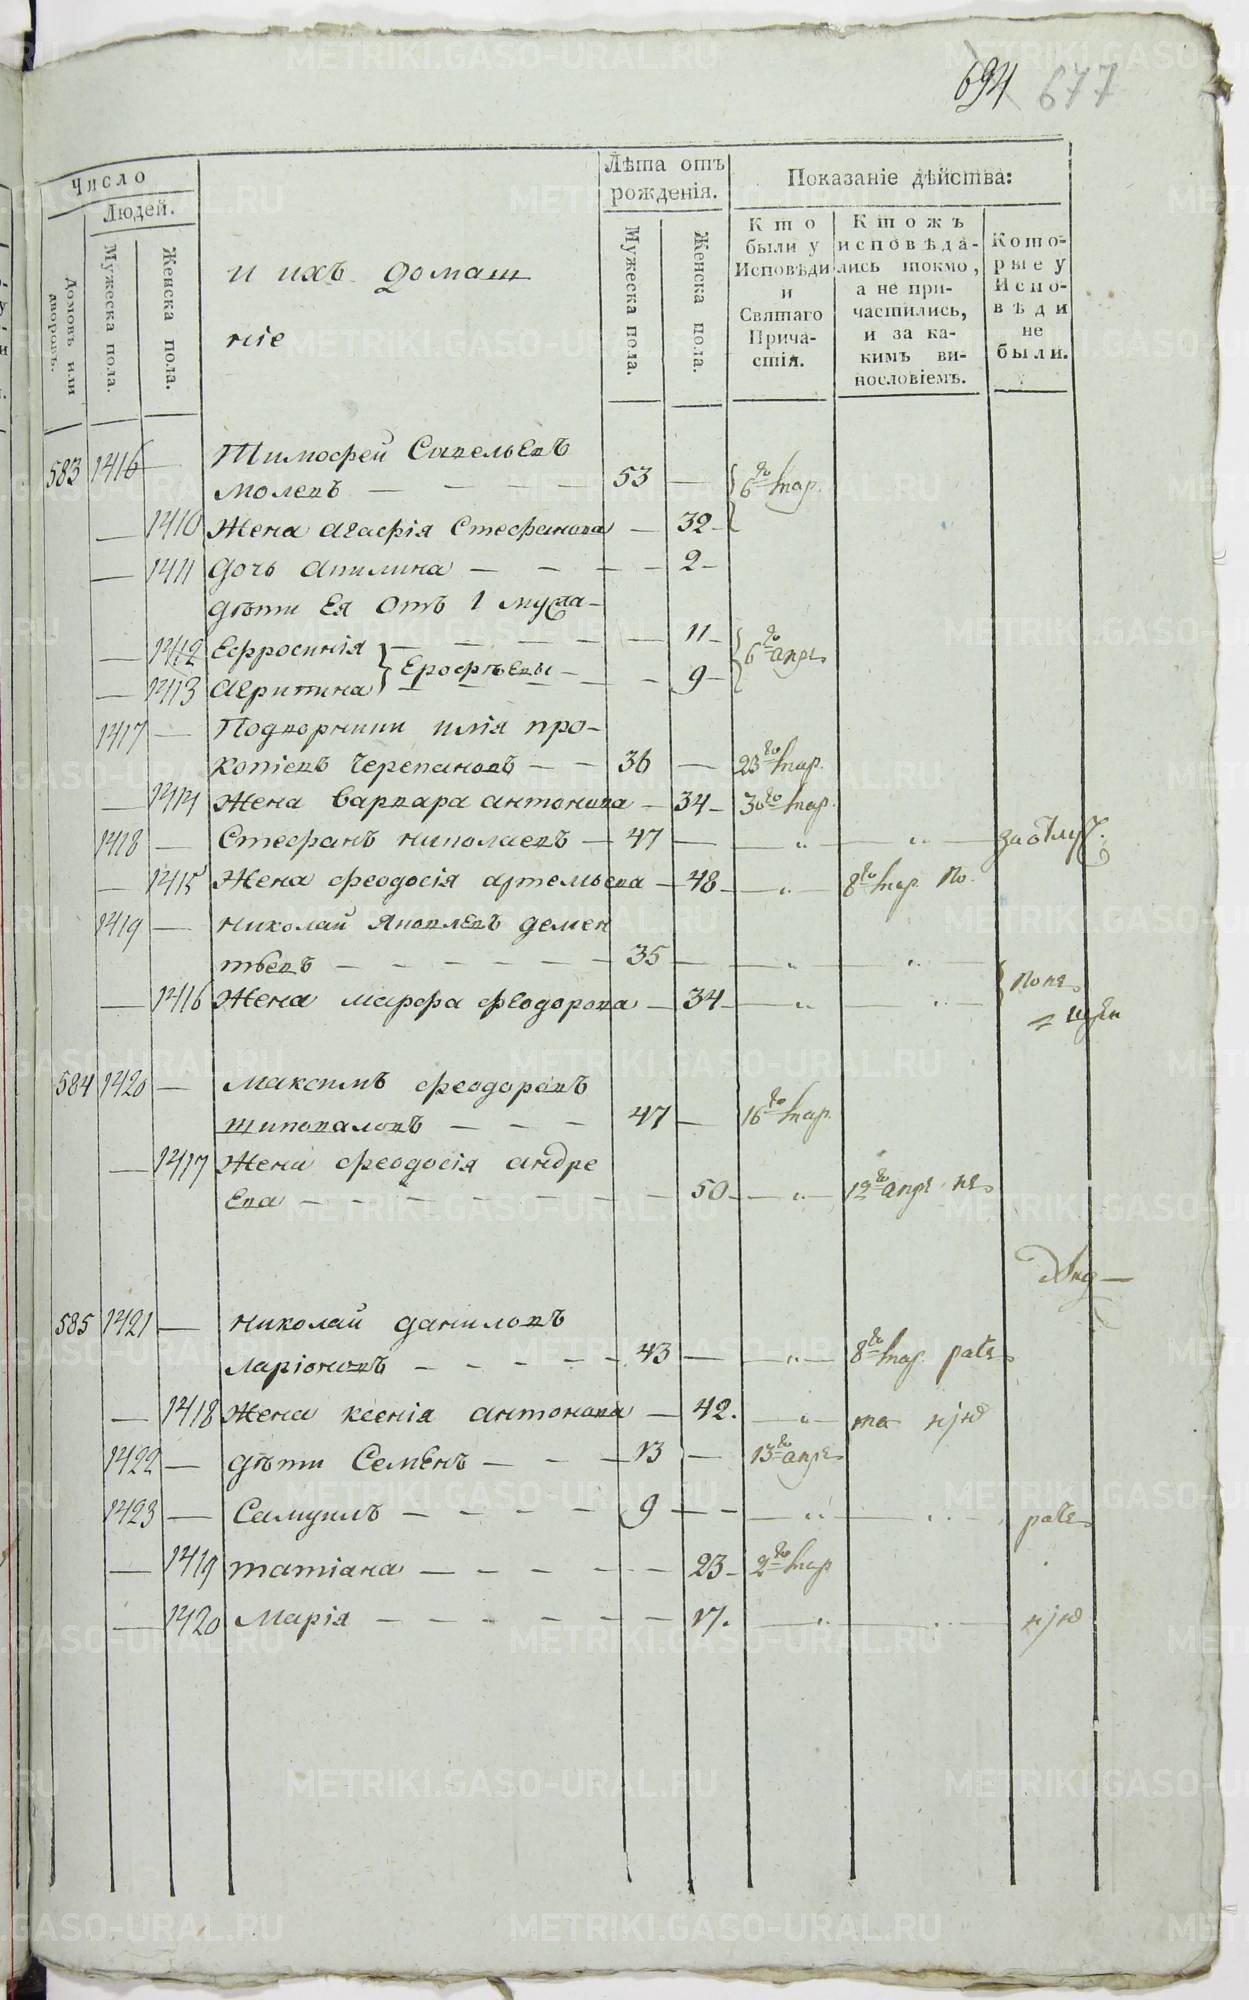 694 677
Число
Людей.
Домовъ или дворовъ.
Мужеска пола.
Женска пола.
и ихъ домаш
ніе
Лѣта отъ
рожденія.
Мужеска пола.
Женска пола.
Показаніе дѣйства:
Кто
были у
Исповѣди
и
Святаго
Прича-
стія.
Ктожъ
исповѣда-
лись токмо,
а не при-
частились,
и за ка-
кимъ ви-
нословіемъ.
Кото-
рые у
Испо-
вѣди
не
были.
583 1416 — Тимофей Савельевъ
Молевъ — — — — 53 — 6го мар.
— 1410 Жена агафія Стефанова — 32 —
— 1411 дочь апилина — — — — 2 —
дѣти Ея отъ 1 мужа —
— 1412 Ефросинія — — — — 11 — 6го апре
— 1413 агрипина Ерофѣевы — — 9 —
1417 — Подворники илія про-
копіевъ Черепановъ — — 36 — 23го мар.
— 1414 Жена варвара антонова — 34 — 30го мар.
1418 — Стефанъ николаевъ — 47 — — „ — „ — за отлуч.
— 1415 Жена феодосія артемьева — 48 — — „ — 8го мар. по.
1419 — николай яковлевъ демен
тьевъ — — — — — — 35 — — „ — „
— 1416 Жена марфа феодорова — 34 — — „ — „
584 1420 — максимъ феодоровъ
шиповаловъ — — — 47 — 16го мар.
— 1417 Жена феодосія андре
Ева — — — — — — — 50 — — „ — 12го апре
585 1421 — николай даниловъ
ларіоновъ — — — — — 43 — — „ — 8го мар.
— 1418 Жена ксенія антонова — 42. — „ —
1422 — дѣти Семенъ — — — 13 — 13го апре
1423 — Самуилъ — — — — 9 — — — „ — „ —
— 1419 татіана — — — — — 23 — 2го мар
— 1420 Марія — — — — — — 17. — „ — „ —
METRIKI.GASO-URAL.RU